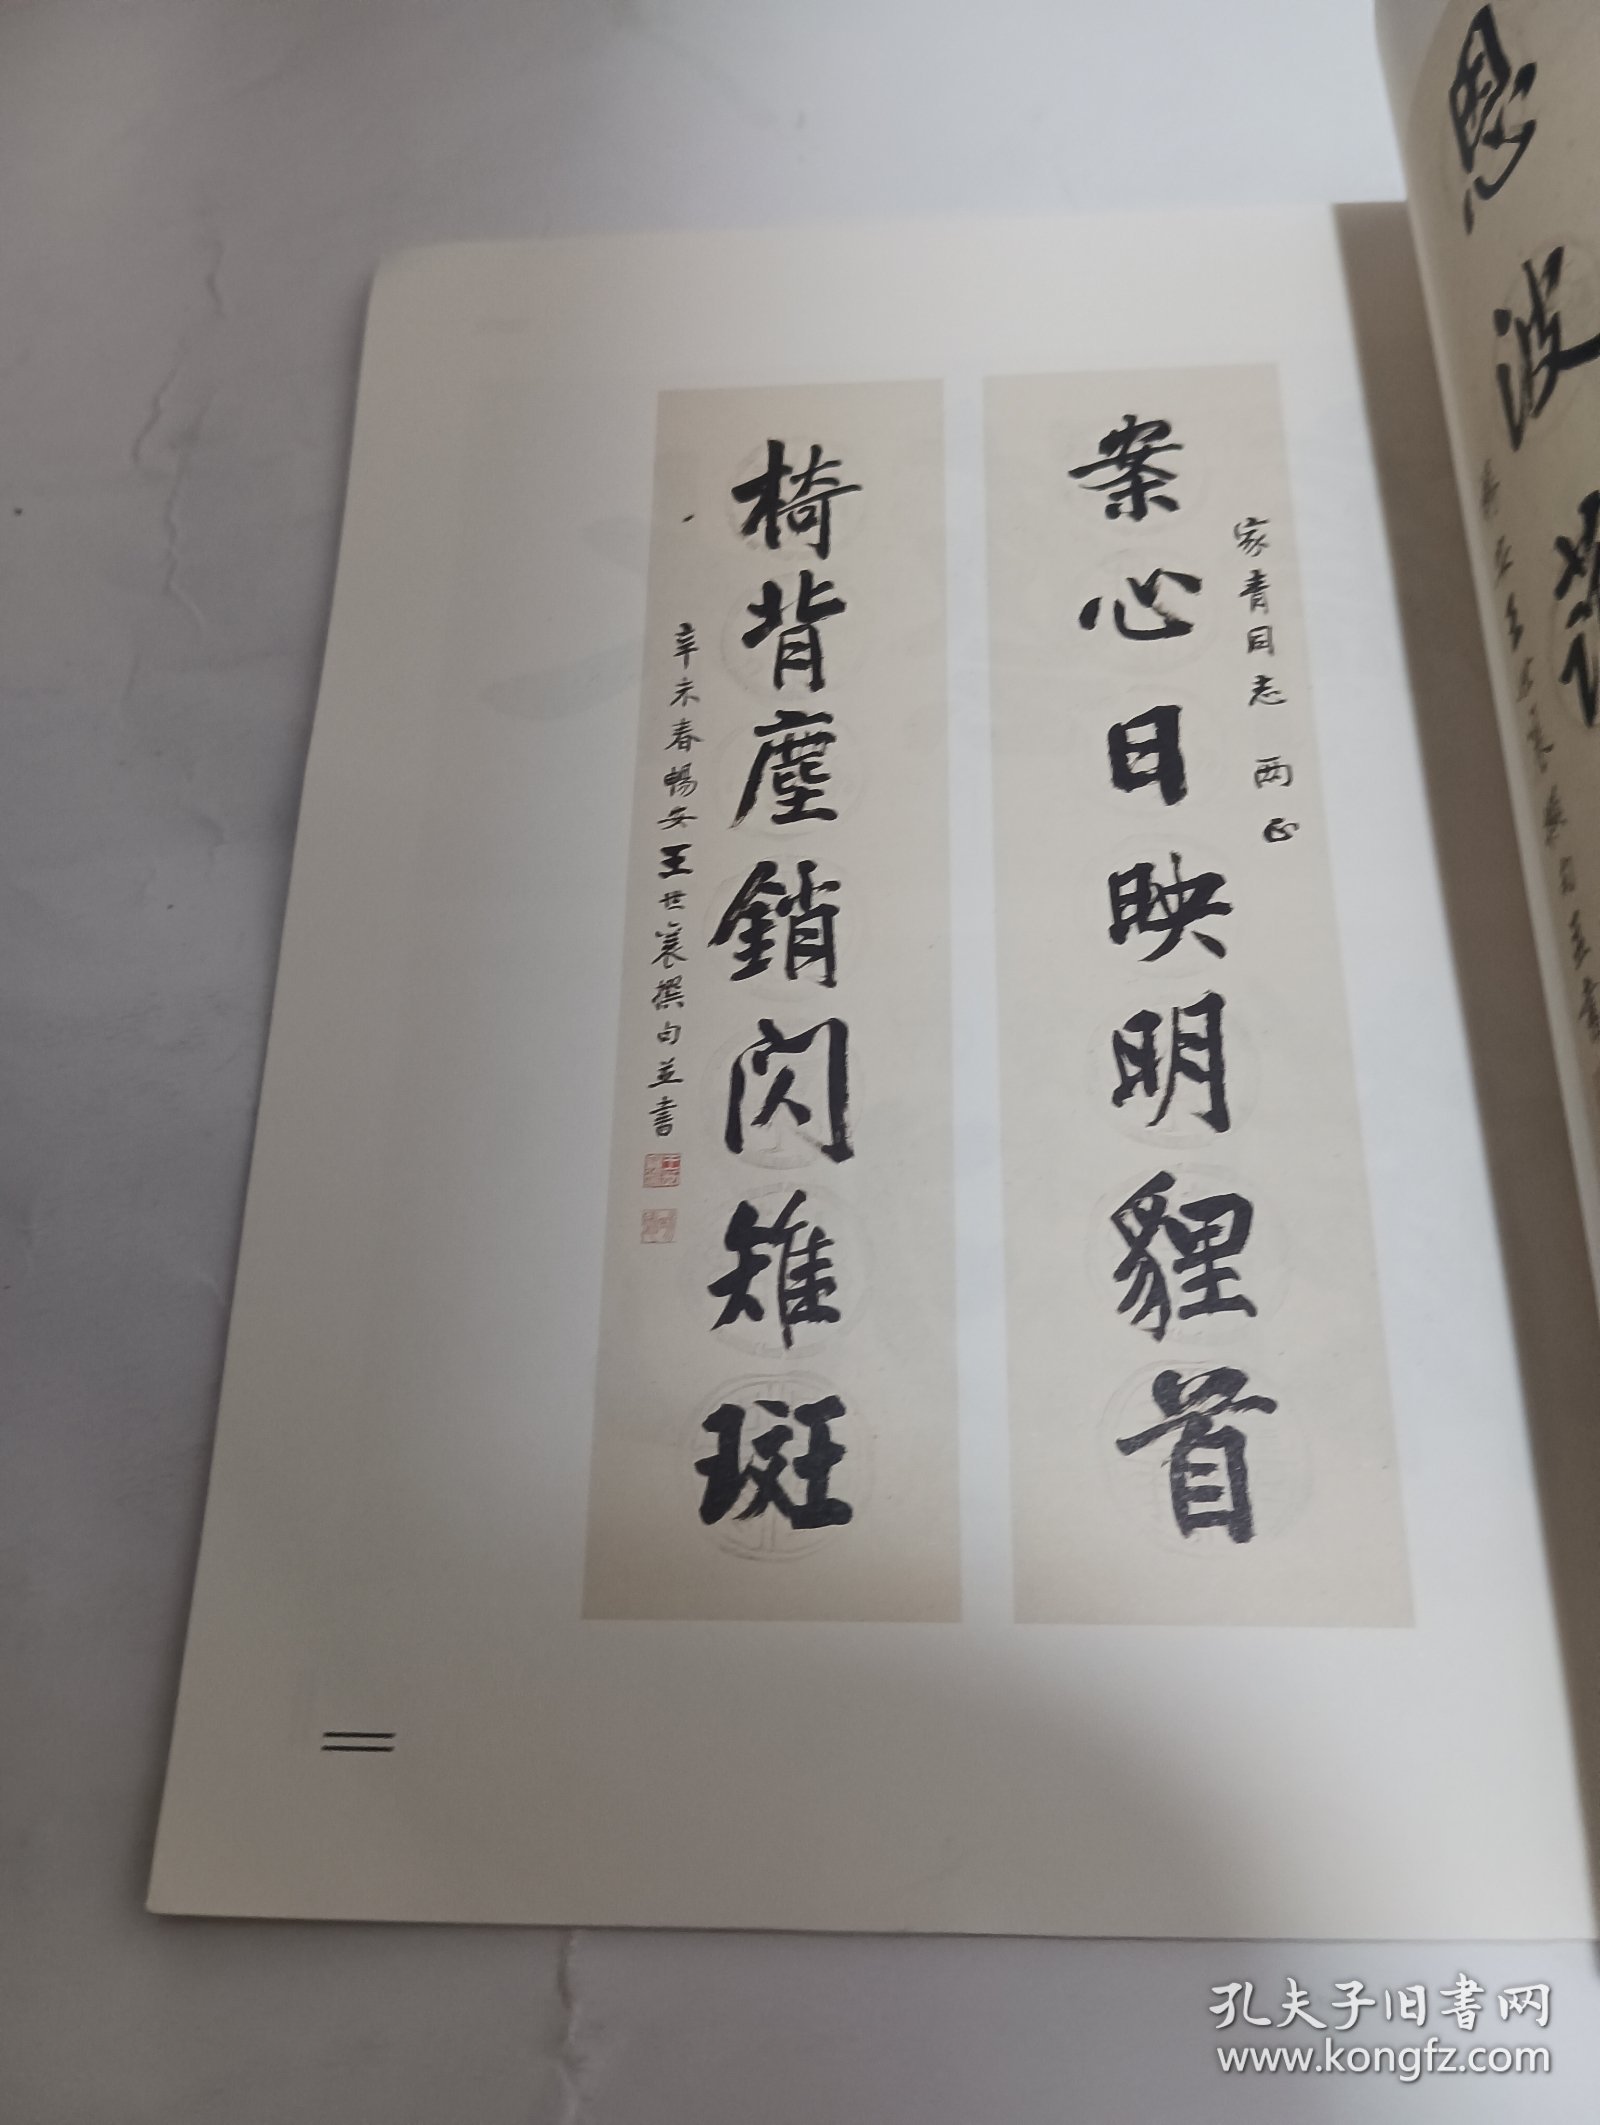 家青同志 两正
案心日映明貍首
椅背塵銷閃雉斑
辛未春暢安王世襄撰句並書
恩波
孔夫子旧书网
www.kongfz.com